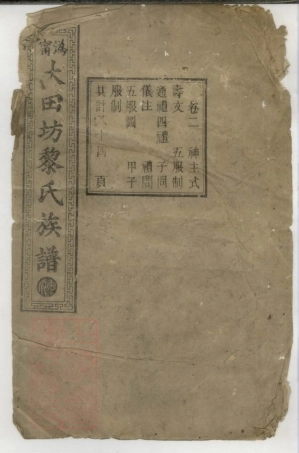 溈甯
大田坊黎氏族譜
卷二 神主式
壽文 五服制
通禮四禮 子問
儀注 禮問
五服圖 甲子
服制
共計 頁